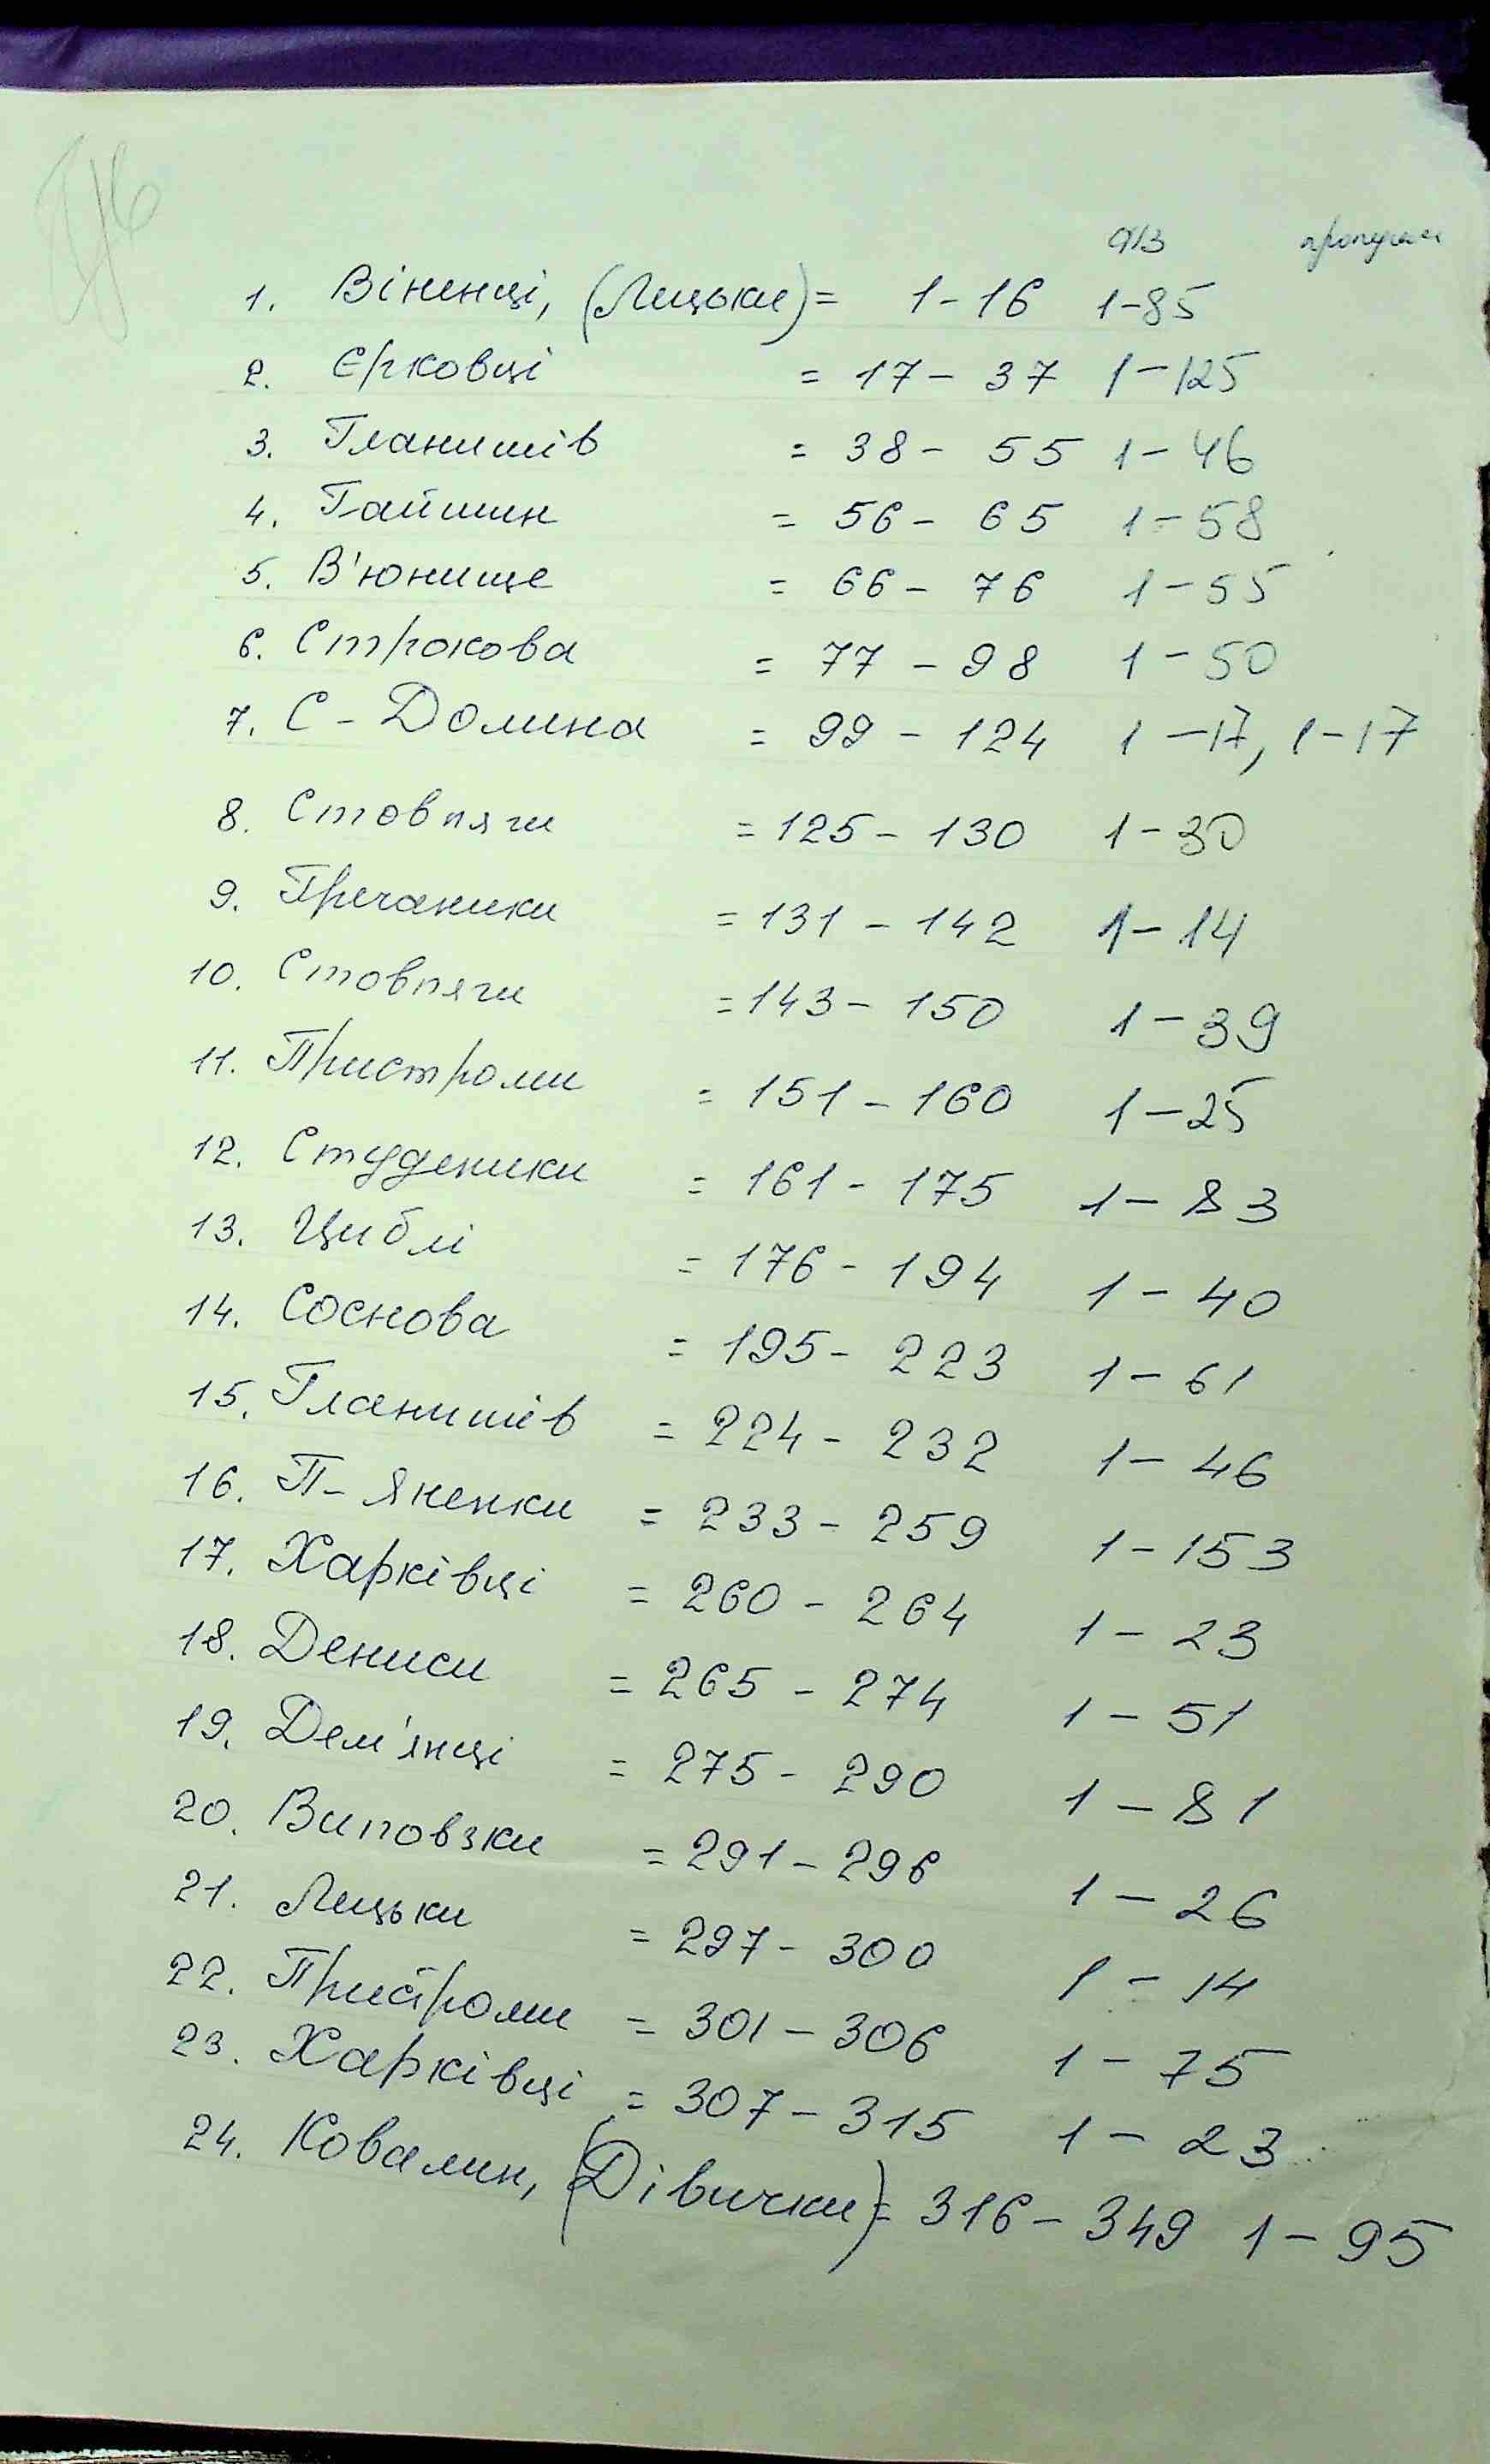 а/з пропуски
1. Віненці, (Лецьки) = 1-16 1-85
2. Єрковці = 17 - 37 1-125
3. Гланишів = 38 - 55 1-46
4. Гайшин = 56 - 65 1-58
5. В'юнище = 66 - 76 1-55
6. Строкова = 77 - 98 1-50
7. С-Долина = 99 - 124 1-17, 1-17
8. Стовпяги = 125 - 130 1-30
9. Гречаники = 131 - 142 1-14
10. Стовпяги = 143 - 150 1-39
11. Пристроми = 151 - 160 1-25
12. Студеники = 161 - 175 1-83
13. Циблі = 176 - 194 1-40
14. Соснова = 195 - 223 1-61
15. Гланишів = 224 - 232 1-46
16. П-Яненки = 233 - 259 1-153
17. Харківці = 260 - 264 1-23
18. Дениси = 265 - 274 1-51
19. Дем'янці = 275 - 290 1-81
20. Виповзки = 291 - 296 1-26
21. Лецьки = 297 - 300 1-14
22. Пристроми = 301 - 306 1-75
23. Харківці = 307 - 315 1-23
24. Ковалин, (Дівички) = 316 - 349 1-95